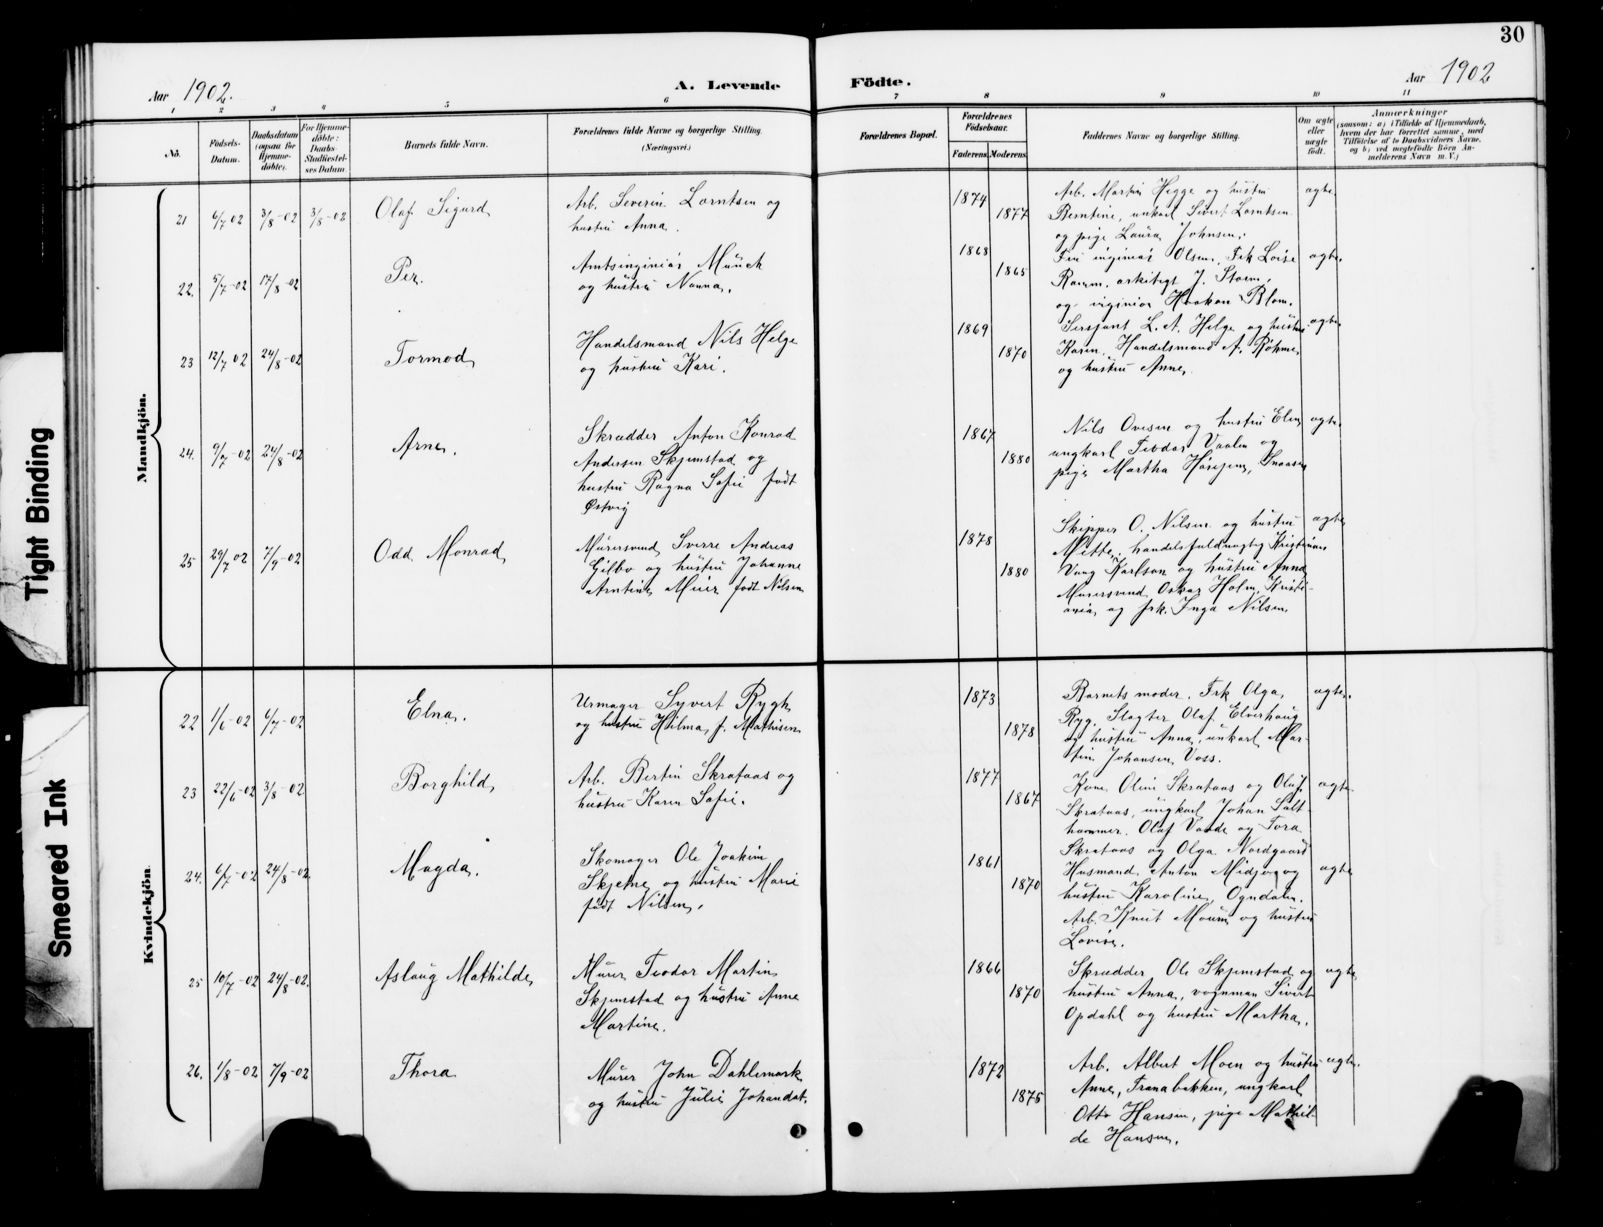 30
Aar 1902.
A. Levende
Födte.
Aar 1902
1 2 3 4 5 6 7 8 9 10 11
No.
Fødsels-Datum.
Daabsdatum (ogsaa for Hjemme-døbte).
For Hjemme-døbte: Daabs-Stadfæstel-ses Datum.
Barnets fulde Navn.
Forældrenes fulde Navne og borgerlige Stilling.
(Næringsvei.)
Forældrenes Bopæl.
Forældrenes Fødselsaar.
Faderens. Moderens.
Faddernes Navne og borgerlige Stilling.
Om ægte eller uægte født.
Anmærkninger
(saasom: a) i Tilfælde af Hjemmedaab,
hvem der har forrettet samme, med
Tilføielse af to Daabsvidners Navne,
og b) ved uægtefødte Börn An-
melderens Navn m. V.)
Mandkjön.
21 6/7 02 3/8-02 3/8-02 Olaf Sigurd
Arb. Severin Lorntsen og
hustru Anna.
1874 1877
Arb. Martin Hegge og hustru
Berntine, unkarl Sivert Lorntsen
og pige Laura Johnsen.
ægte.
22. 5/7-02 17/8-02 Per.
Amtsinginiør Münch
og hustru Nanna.
1868 1865
Fru inginiør Olsen, Frk Loise
Ramm, arkitegt J. Storm,
og inginiør Haakon Blom.
ægte.
23 12/7 02 24/8-02 Tormod
Handelsmand Nils Helge
og hustru Kari.
1869 1870
Sersjant L. A. Helge og hustru
Karen, Handelsmand A. Røhme
og hustru Anne.
ægte.
24. 9/7-02 24/8-02 Arne.
Skrædder Anton Konrad
Andersen Skjemstad og
hustru Ragna Sofie født
Østvig
1867 1880
Nils Ovesen og hustru Elen
ungkarl Teodor Vaalen og
pige Martha
ægte.
25 29/7 02 7/9-02 Odd Monrad
Murersvend Sverre Andreas
Gilbo og hustru Johanne
Arntine Muir født Nilsen
1878 1880
Skipper O. Nilsen og hustru
Mette, handelsfuldmægtig Kristian
Vang Karlson og hustru Anna
Murersvend Oskar Holm, Kristi-
ania og frk. Inga Nilsen
ægte
Kvindekjön.
22 1/6-02 6/7-02 Elna.
Urmager Syvert Rygh
og hustru Hilma f. Mathisen
1873 1878
Barnets moder. Frk Olga
Ryg. Slagter Olaf Elverhaug
og hustru Anna, unkarl Mar-
tin Johansen Voss.
ægte.
23 22/6-02 3/8-02 Borghild
Arb. Bertin Skrataas og
hustru Karen Sofie.
1877 1867
Kone Oline Skrataas og Oluf
Skrataas, ungkarl Johan Salt-
hammer. Olaf Vaade og Tora
Skrataas og Olga Nordgaard
ægte.
24. 6/7-02 24/8-02 Magda.
Skomager Ole Joakim
Skjefne og hustru Marie
født Nilsen.
1861 1870
Husmand Anton Midjo og
hustru Karoline, Ogndalen.
Arb. Knut Moum og hustru
Lovise.
ægte
25 10/7-02 24/8-02. Aslaug Mathilde
Murer Teodor Martin
Skjemstad og hustru Anne
Martine.
1866 1870
Skrædder Ole Skjemstad og
hustru Anna, vognman Sivert
Opdahl og hustru Martha.
ægte
26. 1/8-02 7/9-02 Thora
Murer John Dahlemark
og hustru Julie Johandat.
1872 1875
Arb. Albert Moen og hustru
Anne, Tranabakken, ungkarl
Otto Hansen, pige Mathil-
de Hansen.
ægte.
Tight Binding
Smeared Ink